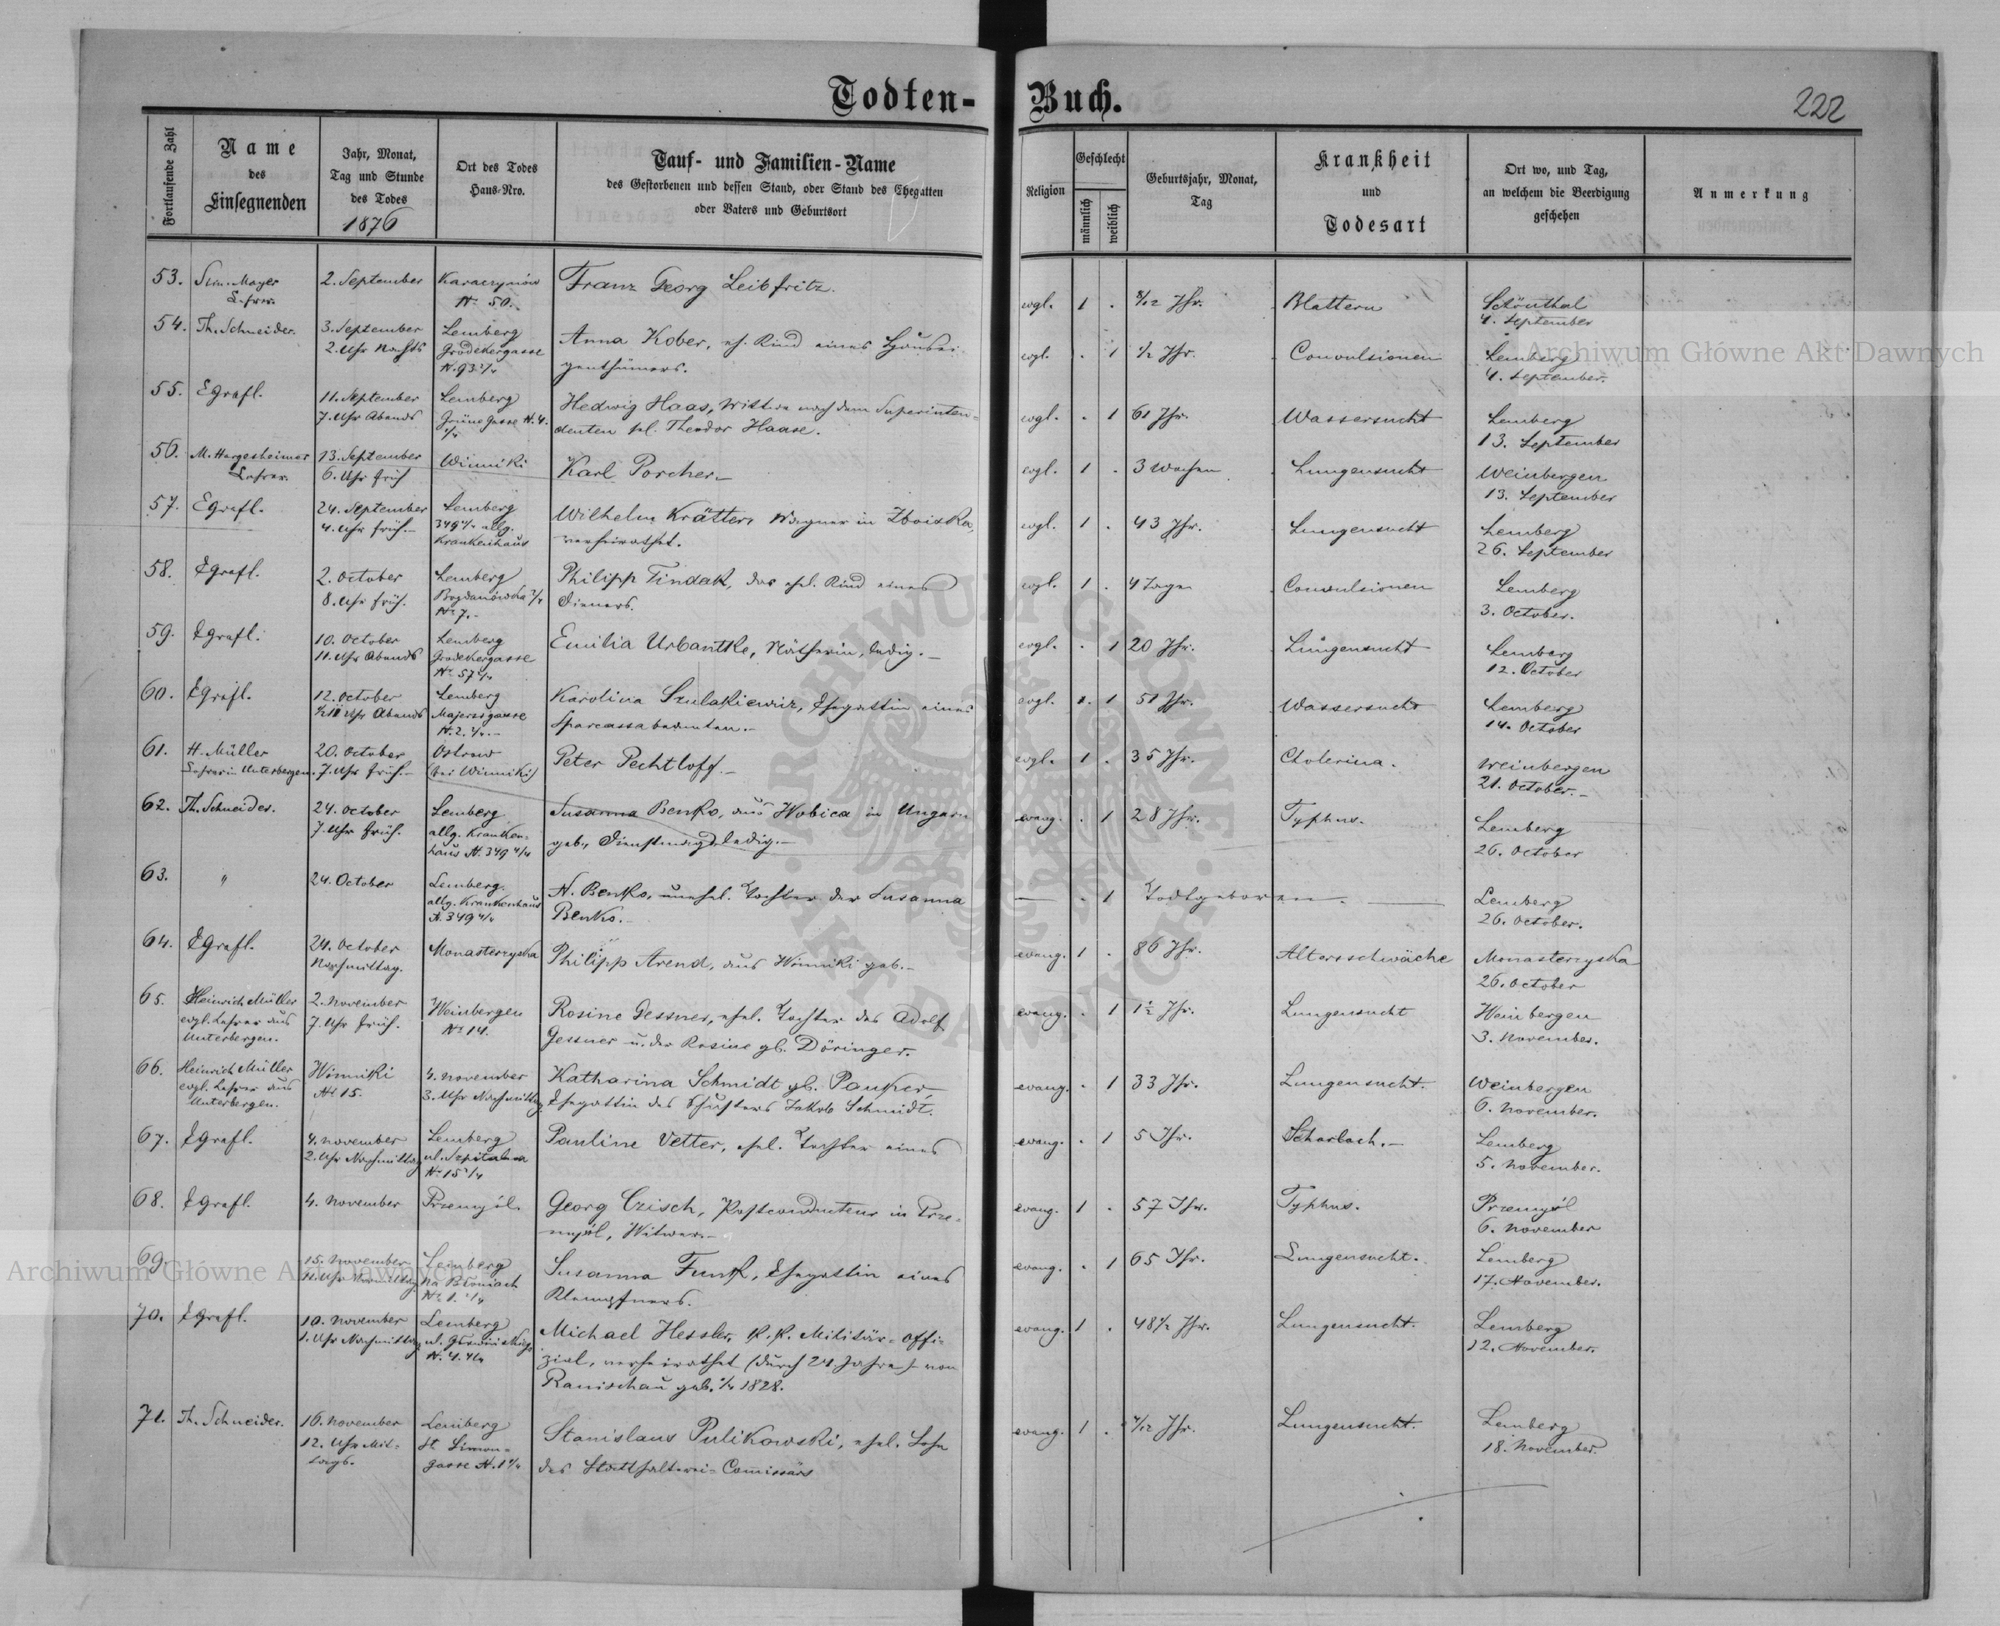 Todten-Buch.
222
Fortlaufende Zahl
Name
des
Einsegnenden
Jahr, Monat,
Tag und Stunde
des Todes
1876
Ort des Todes
Haus-Nro.
Tauf- und Familien-Name
des Gestorbenen und dessen Stand, oder Stand des Ehegatten
oder Vaters und Geburtsort
Religion
Geschlecht
männlich
weiblich
Geburtsjahr, Monat,
Tag
Krankheit
und
Todesart
Ort wo, und Tag,
an welchem die Beerdigung
geschehen
Anmerkung
53. Mayer 2. September Franz Georg Leibfritz. evgl. 1 . Jhr. Blattern Schönthal
Lehrer N. 50. 4. September
54. Th. Schneider. 3. September Lemberg Anna Kober, eh. Kind eines Hausei- evgl. . 1 1/2 Jhr. Convulsionen Lemberg
2. Uhr Nachts Grodekergasse genthümers. 4. September.
N. 93 1/4
55. Egrafl. 11. September Lemberg Hedwig Haas, Wittwe nach dem Superinten- evgl. . 1 61 Jhr. Wassersucht Lemberg
7. Uhr Abends Grüne Gasse N. 4. denten sel. Theodor Haase. 13. September
56. M. Hargesheimer 13. September Winniki Karl Porcher evgl. 1 . 3 Wochen Lungensucht Weinbergen
Lehrer. 6. Uhr früh 13. September
57. Egrafl. 24. September Lemberg Wilhelm Krätter, Wagner in Zboiska, evgl. 1 . 43 Jhr. Lungensucht Lemberg
4. Uhr früh. 349 4/4 allg. verheirathet. 26. September
Krankenhaus
58. Egrafl. 2. October Lemberg Philipp Tindak, das ehel. Kind eines evgl. 1 . 4 Tage Convulsionen Lemberg
8. Uhr früh. Bogdanówka Dieners. 3. October.
N. 7.
59. Egrafl. 10. October Lemberg Emilia Urbantke, Nätherin, ledig. evgl. . 1 20 Jhr. Lungensucht Lemberg
11. Uhr Abends Grodekergasse 12. October
N. 57 1/4
60. Egrafl. 12. October Lemberg Karolina Szulakiewicz, Ehegattin eines evgl. . 1 51 Jhr. Wassersucht Lemberg
Uhr Abends Majerugasse Sparcassabeamten. 14. October
61. H. Müller 20. October Ostrow Peter Pechtloff. evgl. 1 . 35 Jhr. Cholerina. Weinbergen
Lehrer in Unterbergen. 7. Uhr früh. (bei Winniki) 21. October.
62. Th. Schneider. 24. October Lemberg Susanna Benko, aus Hobica in Ungarn evang. . 1 28 Jhr. Typhus. Lemberg
7. Uhr früh. allg. Kranken- geb., Dienstmagd, ledig. 26. October
haus N. 349 4/4
63. " 24. October Lemberg. N. Benko, unehel. Tochter der Susanna — . 1 Todtgeboren. Lemberg
allg. Krankenhaus Benko. 26. October.
N. 349 4/4
64. Egrafl. 24. October Monasterzyska Philipp Arend, aus Winniki geb. evang. 1 . 86 Jhr. Altersschwäche Monasterzyska
Nachmittag. 26. October
65. Heinrich Müller 2. November Weinbergen Rosine Gessner, ehel. Tochter des Adolf evang. . 1 1 1/2 Jhr. Lungensucht Weinbergen
evgl. Lehrer aus 7. Uhr früh. N. 14. Gessner u. der Rosine gb. Döringer. 3. November.
Unterbergen.
66. Heinrich Müller Winniki 4. November Katharina Schmidt gb. Pauker, evang. . 1 33 Jhr. Lungensucht. Weinbergen
evgl. Lehrer aus N. 15. 3. Uhr Nachmittag Ehegattin des Schusters Jakob Schmidt. 6. November.
Unterbergen.
67. Egrafl. 4. November Lemberg Pauline Vetter, ehel. Tochter eines evang. . 1 5 Jhr. Scharlach. Lemberg
2. Uhr Nachmittag ul. Szpitalna 5. November.
N. 15 1/4
68. Egrafl. 4. November Przemyśl Georg Czisch, Postconducteur in Prze- evang. 1 . 57 Jhr. Typhus. Przemyśl
myśl, Witwer. 6. November
69. 15. November Lemberg Susanna Funk, Ehegattin eines evang. . 1 65 Jhr. Lungensucht. Lemberg
11. Uhr Na Błoniach Klempfners. 17. November.
N. 1.
70. Egrafl. 10. November Lemberg Michael Hessler, k. k. Militär-Offi- evang. 1 . 48 1/2 Jhr. Lungensucht. Lemberg
1. Uhr Nachmittag ul. zial, verheirathet (durch 24 Jahre) von 12. November.
Ranischau geb. 1828.
71. Th. Schneider. 16. November Lemberg Stanislaus Pulikowski, ehel. Sohn evang. 1 . Jhr. Lungensucht. Lemberg
12. Uhr Mit- St Simon- des Statthalterei-Comissärs 18. November.
tags. gasse N. 1 4/4
Archiwum Główne Akt Dawnych
Archiwum Główne Akt Dawnych
ARCHIWUM GŁÓWNE AKT DAWNYCH